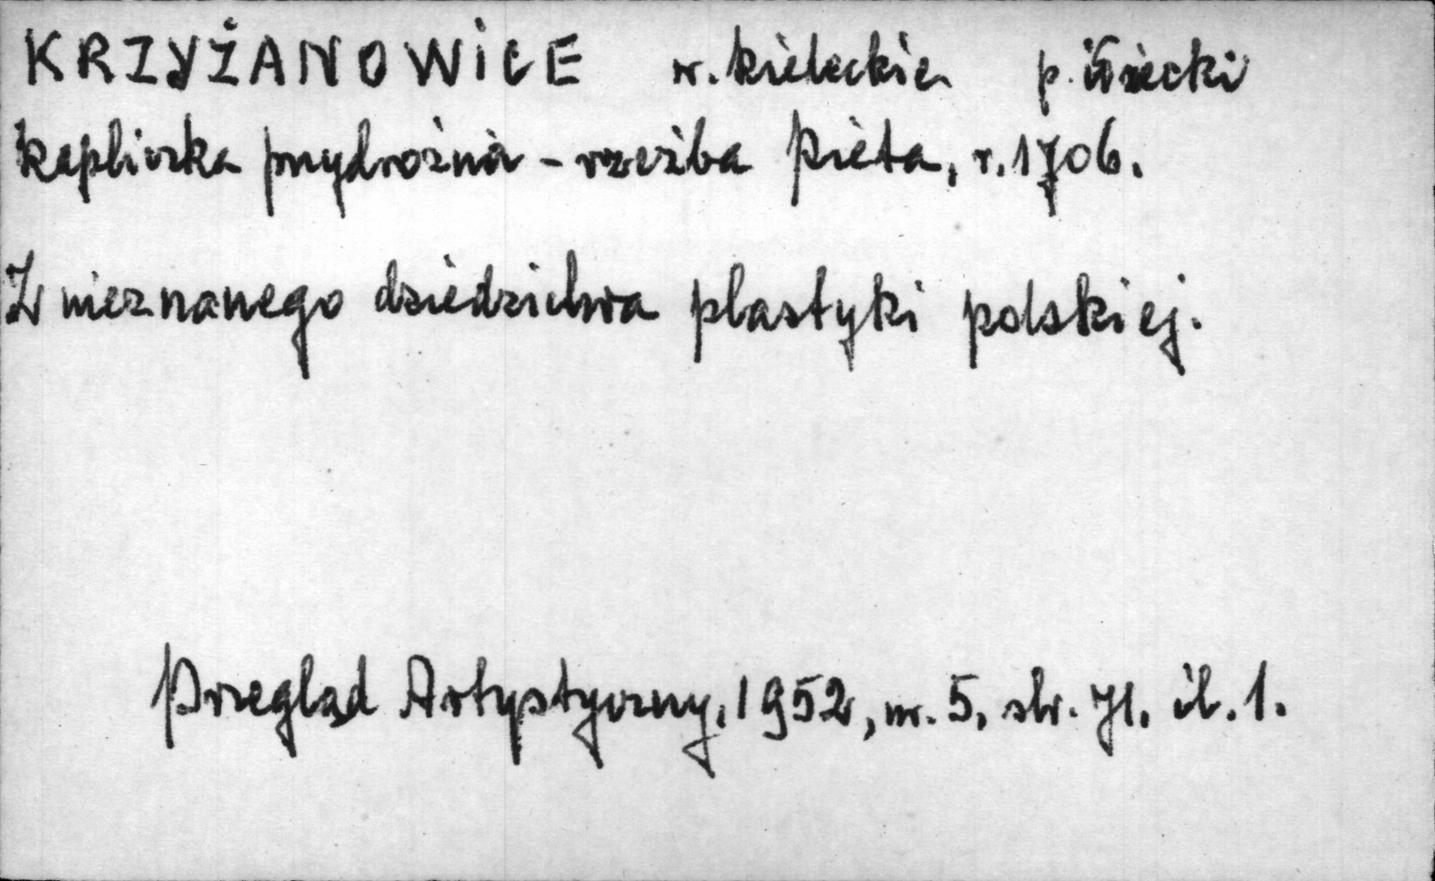 KRZYŻANOWICE w. kieleckie p. iłżecki
kapliczka przydrożna - rzeźba Pieta, r. 1706.
Z nieznanego dziedzictwa plastyki polskiej.
Przegląd Artystyczny, 1952, nr. 5, str. 71. il. 1.